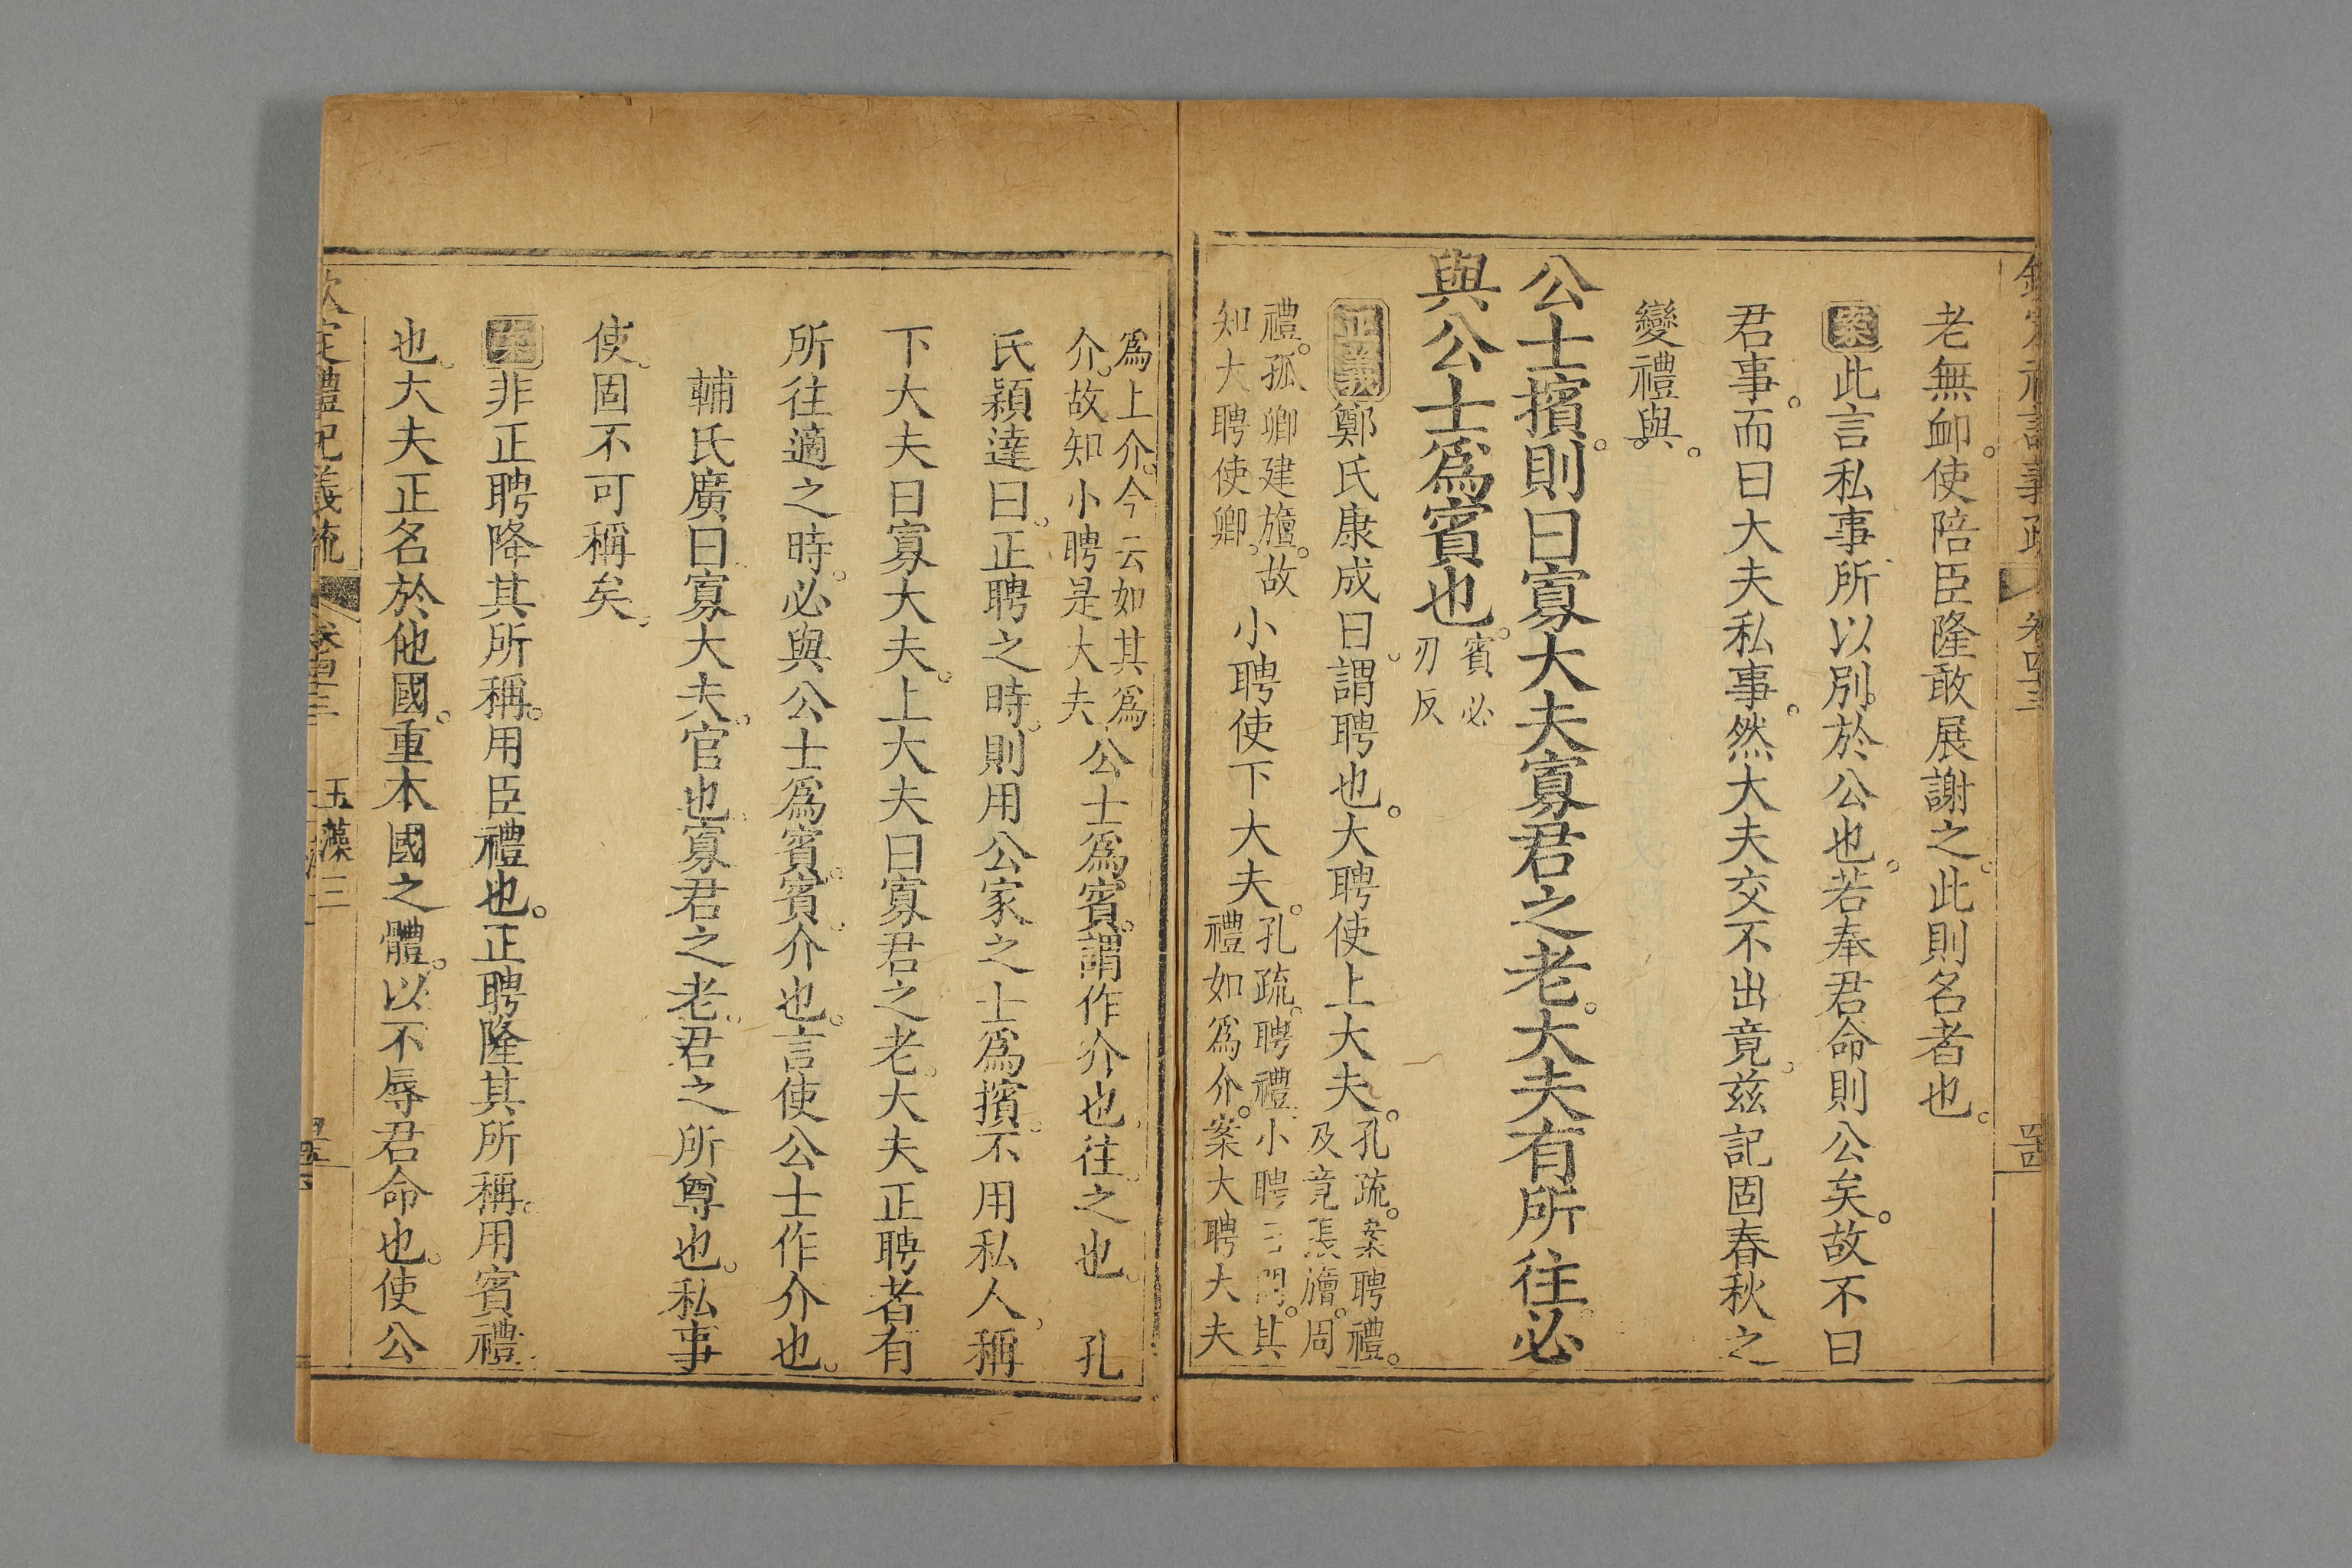 老無卹使陪臣隆敢展謝之此則名者也
案此言私事所以別於公也若奉君命則公矣故不曰
君事而曰大夫私事然大夫交不出竟茲記固春秋之
變禮與
公士擯則曰寡大夫寡君之老大夫有所往必
與公士爲賓也賓必
刃反
正義鄭氏康成曰謂聘也大聘使上大夫孔疏案聘禮
及竟張旜周
禮孤卿建旜故
知大聘使卿小聘使下大夫孔疏聘禮小聘曰問其
禮如爲介案大聘大夫
爲上介今云如其爲
介故知小聘是大夫公士爲賓謂作介也往之也 孔
氏穎達曰正聘之時則用公家之士爲擯不用私人稱
下大夫曰寡大夫上大夫曰寡君之老大夫正聘者有
所往適之時必與公士爲賓賓介也言使公士作介也
輔氏廣曰寡大夫官也寡君之老君之所尊也私事
使固不可稱矣
案非正聘降其所稱用臣禮也正聘隆其所稱用賓禮
也大夫正名於他國重本國之體以不辱君命也使公
欽定禮記義疏 卷四十三 玉藻三